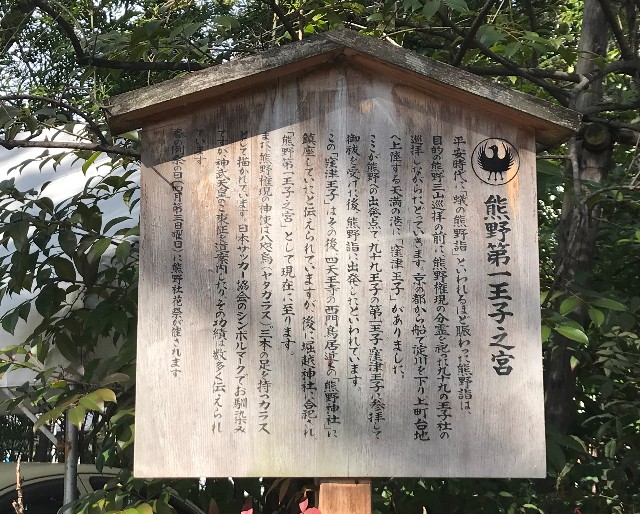 熊野第一王子之宮
平安時代、「蟻の熊野詣」いわれるほど賑わった熊野詣は、
目的の熊野三山巡拝の前に熊野権現の分霊を祀った九十九の王子社の
巡拝しながらたどっていきます。京の都から船で淀川を下り、上町台地
へ上陸する天満の港に「窪津王子」がありました。
ここが熊野の出発点で九十九王子の第一王子「窪津王子」に参拝して
御祓を受けた後、熊野詣に出発したといわれています。
この「窪津王子」はその後、四天王寺の西門鳥居近の「熊野神社」に
鎮座していたと伝えられていますが、後に堀越神社に合祀され、
「熊野第一王子之宮」として現在に至ります。
また熊野権現の神使は八咫烏(ヤタカラス)三本の足を持つカラス
として描かれています。日本サッカー協会のシンボルマークでお馴染み
ですが神武天皇のご東征を道案内したり、その功績は数多く伝えられ
ています。
日(四月第二日曜日)に熊野社花祭が催されます